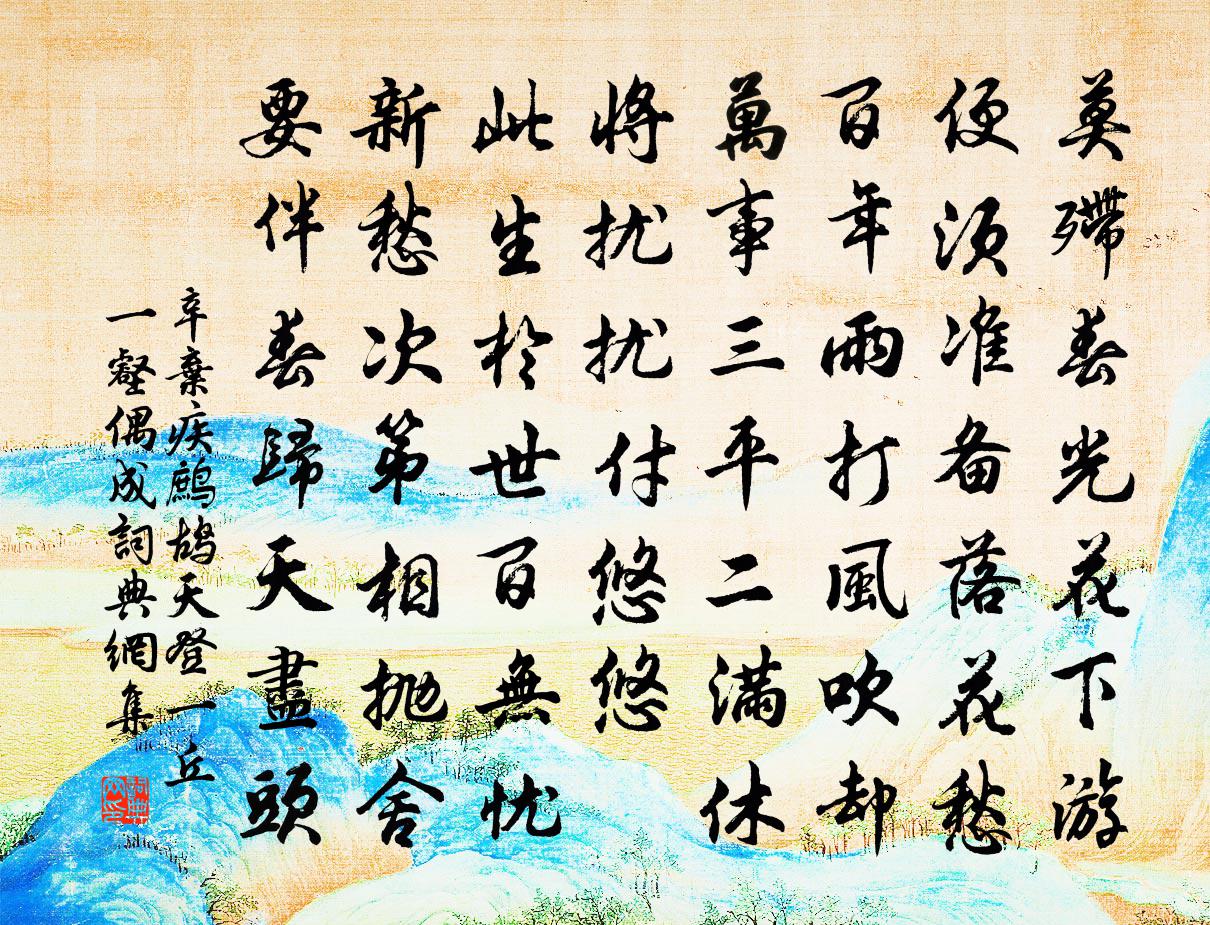 莫殢春光花下游
便須准备落花愁
百年雨打風吹却
萬事三平二滿休
將扰扰付悠悠
此生於世百無忧
新愁次第相抛舍
要伴春歸天盡頭
辛棄疾鷓鴣天登一丘
一壑偶成詞典網集